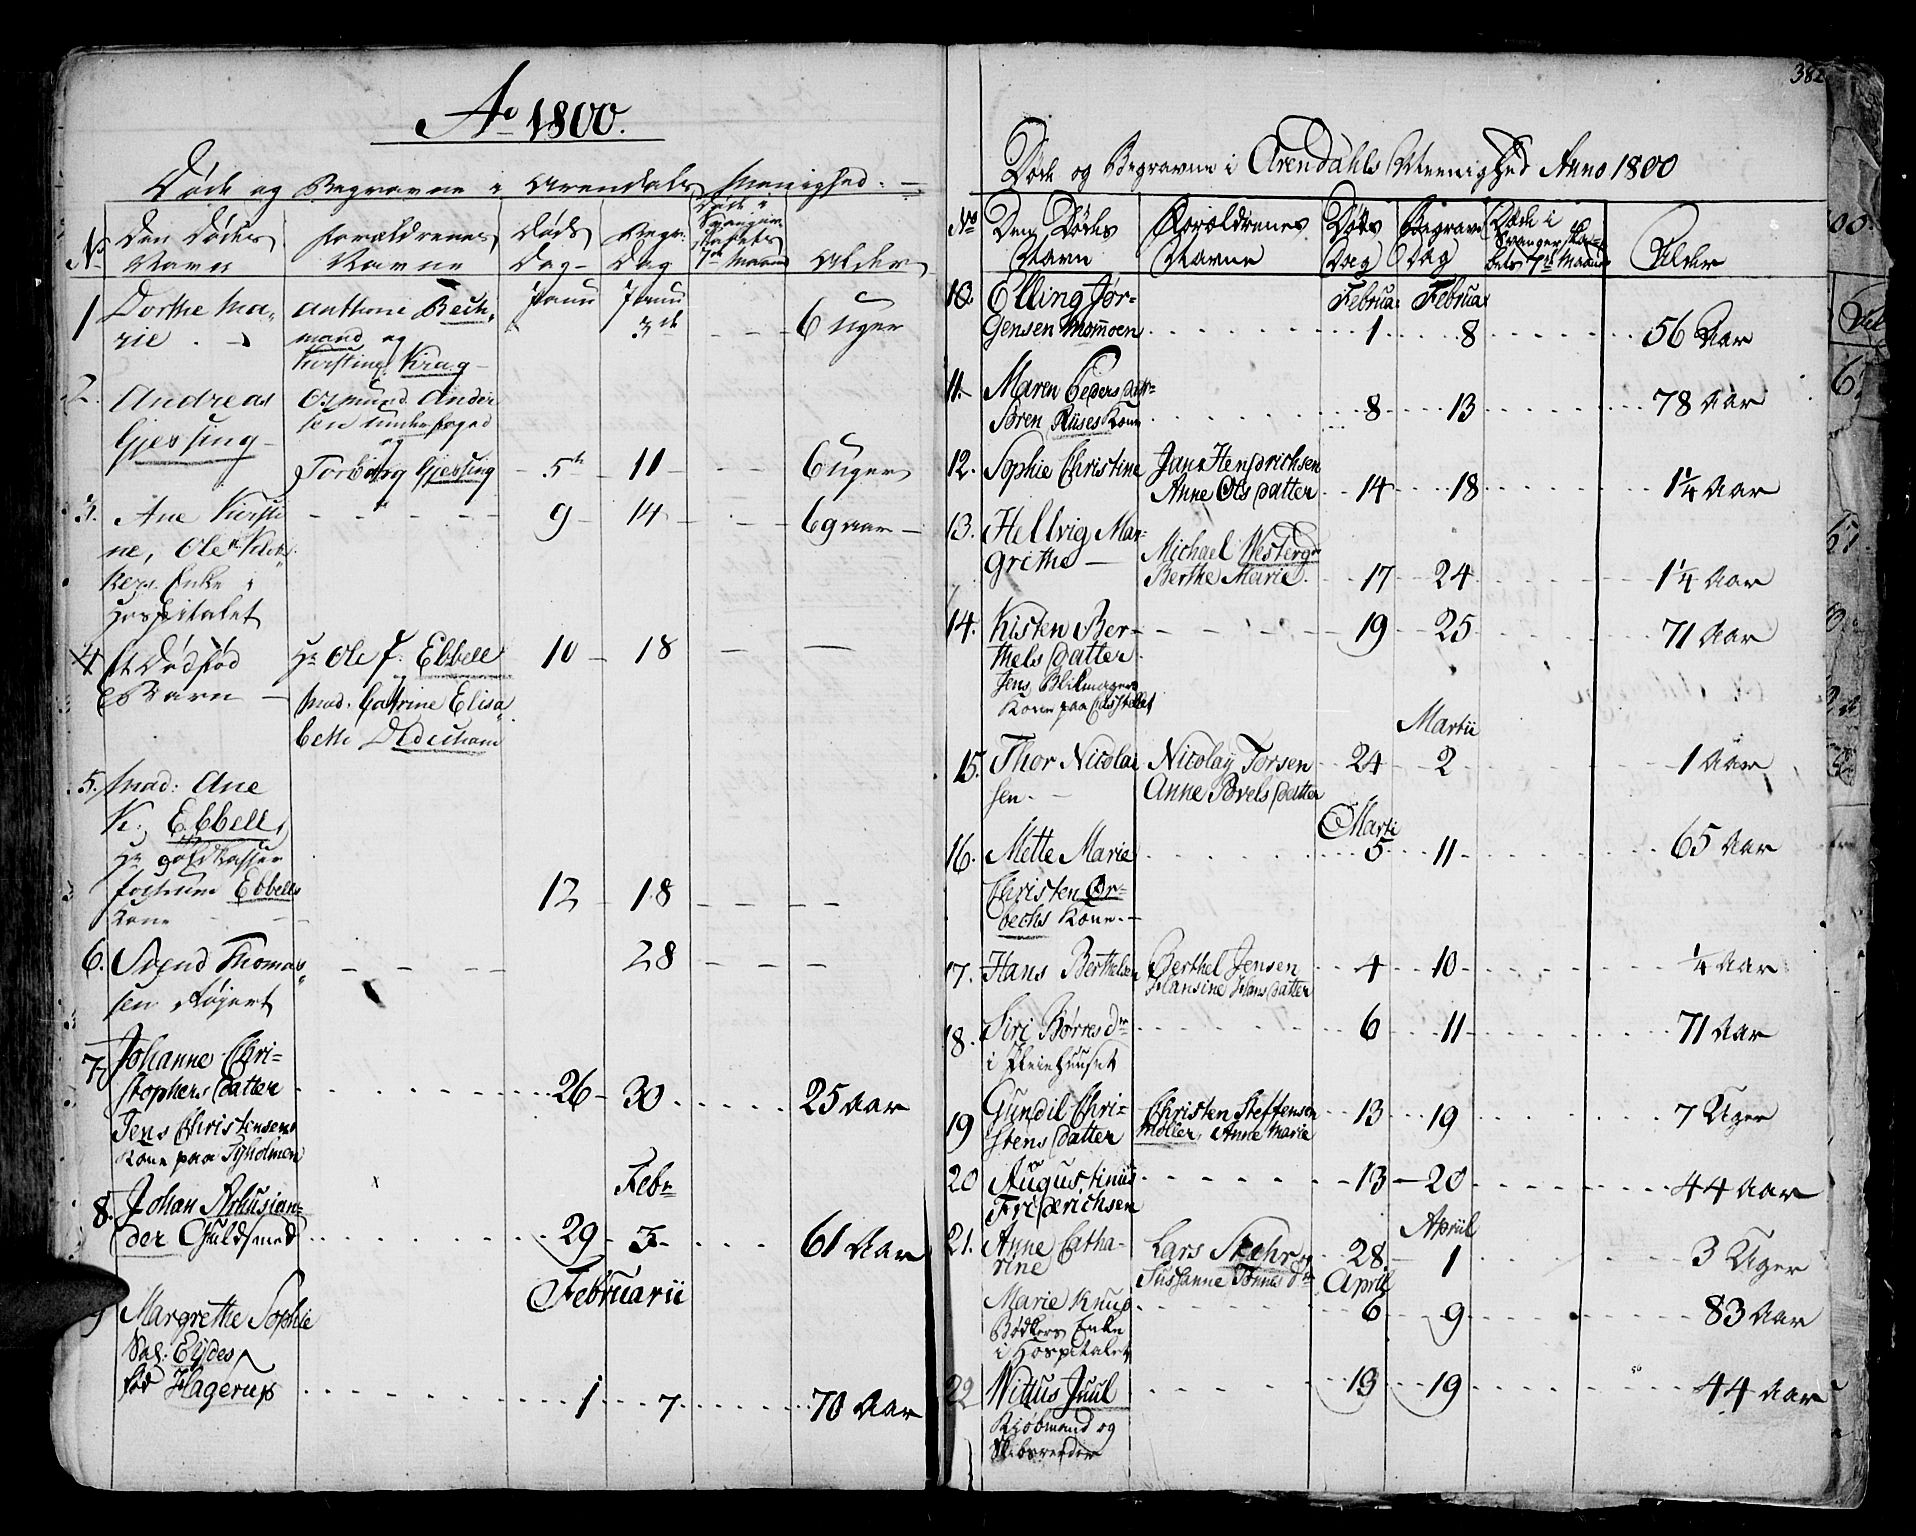 Ao 1800.
Døde og Begravne i Arendals Menighed.
No
Den Dødes Navn
Forældrenes Navne
Døds Dag
Begr: Dag
Døde i Svangerskabets 7de Maaned
Alder
1
Dorthe Ma,
rie
Anthoni Bech,
mand og
Kirstine Krag
Janu
Janu
3de
6 Uger
2.
Andreas
Gjessing
Osmund Ander
sen Underfoged
og
Torborg Gjessing
5te
11
6 Uger
3.
Ane Kirsti
ne, Ole
kers Enke i
Hospitalet
9
14
69 aar
4
Et Dødfød
Barn
Hr Ole F. Ebbell
Mad. Catrine Elisa
beth Dedekam
10
18
5.
Mad: Ane
K. Ebbell,
Hr
Jochum Ebbells
Kone
12
18
6.
Svend Thomas
sen Røjert
28
7.
Johanne Chri-
stophers Datter
Jens Christensens
Kone paa Tyholmen
26
30
25 Aar
Febr
8.
Johan
der Guldsmed
29
3
61 Aar
Februarii
9
Margrethe Sophie
Sal: Eydes
fød Hagerup
1
7
70 Aar
382
Døde og Begravne i Arendahls Meenighed Anno 1800
No
Den Dødes Navn
Forældrenes Navne
Døds Dag
Begrave Dag
Døde i Svangerskabets 7de Maaned
Alder
10.
Elling Jør-
gensen Momoen
Februar
1
Februar
8
56 Aar
11.
Maren Peders Datt-
Søren Riises Kone
8
13
78 Aar
12.
Sophie Christine
Jan Hendrichsen
Anne Ols Datter
14
18
1¼ Aar
13.
Hellvig Mar-
grethe
Michael Westerg
Berthe Marie
17
24
1¼ Aar
14.
Kisten Ber-
thels Datter
Jens Blikmagers
Kone paa
19
25
71 Aar
Martii
15.
Thor Nicolai
sen.
Nicolay Torsen
Anne Povels Datter
24
2
1 Aar
Marti
16.
Mette Marie
Christen Ør-
bechs Kone
5
11
65 Aar
17.
Hans Berthelsen
Berthel Jensen
Hansine Hans Datter
4
10
¼ Aar
18.
Siri Børres dr
i Pleiehuuset
6
11
71 Aar
19
Gundil Chri-
stens Datter
Christen Steffensen
Møller, Anne Marie
13
19
7 Uger
20
Augustinus
Friderichsen
13
20
44 Aar
Apriil
21.
Anne Catha-
rine
Lars Stæhr og
Susanne Tønnes dr
28
1
3 Uger
Apriil
Marie Knup
Bødkers Enke
i Hospitalet
6
9
83 Aar
22
Wittus Juul
Kjøbmand og
Skibsreeder
13
19
44 Aar